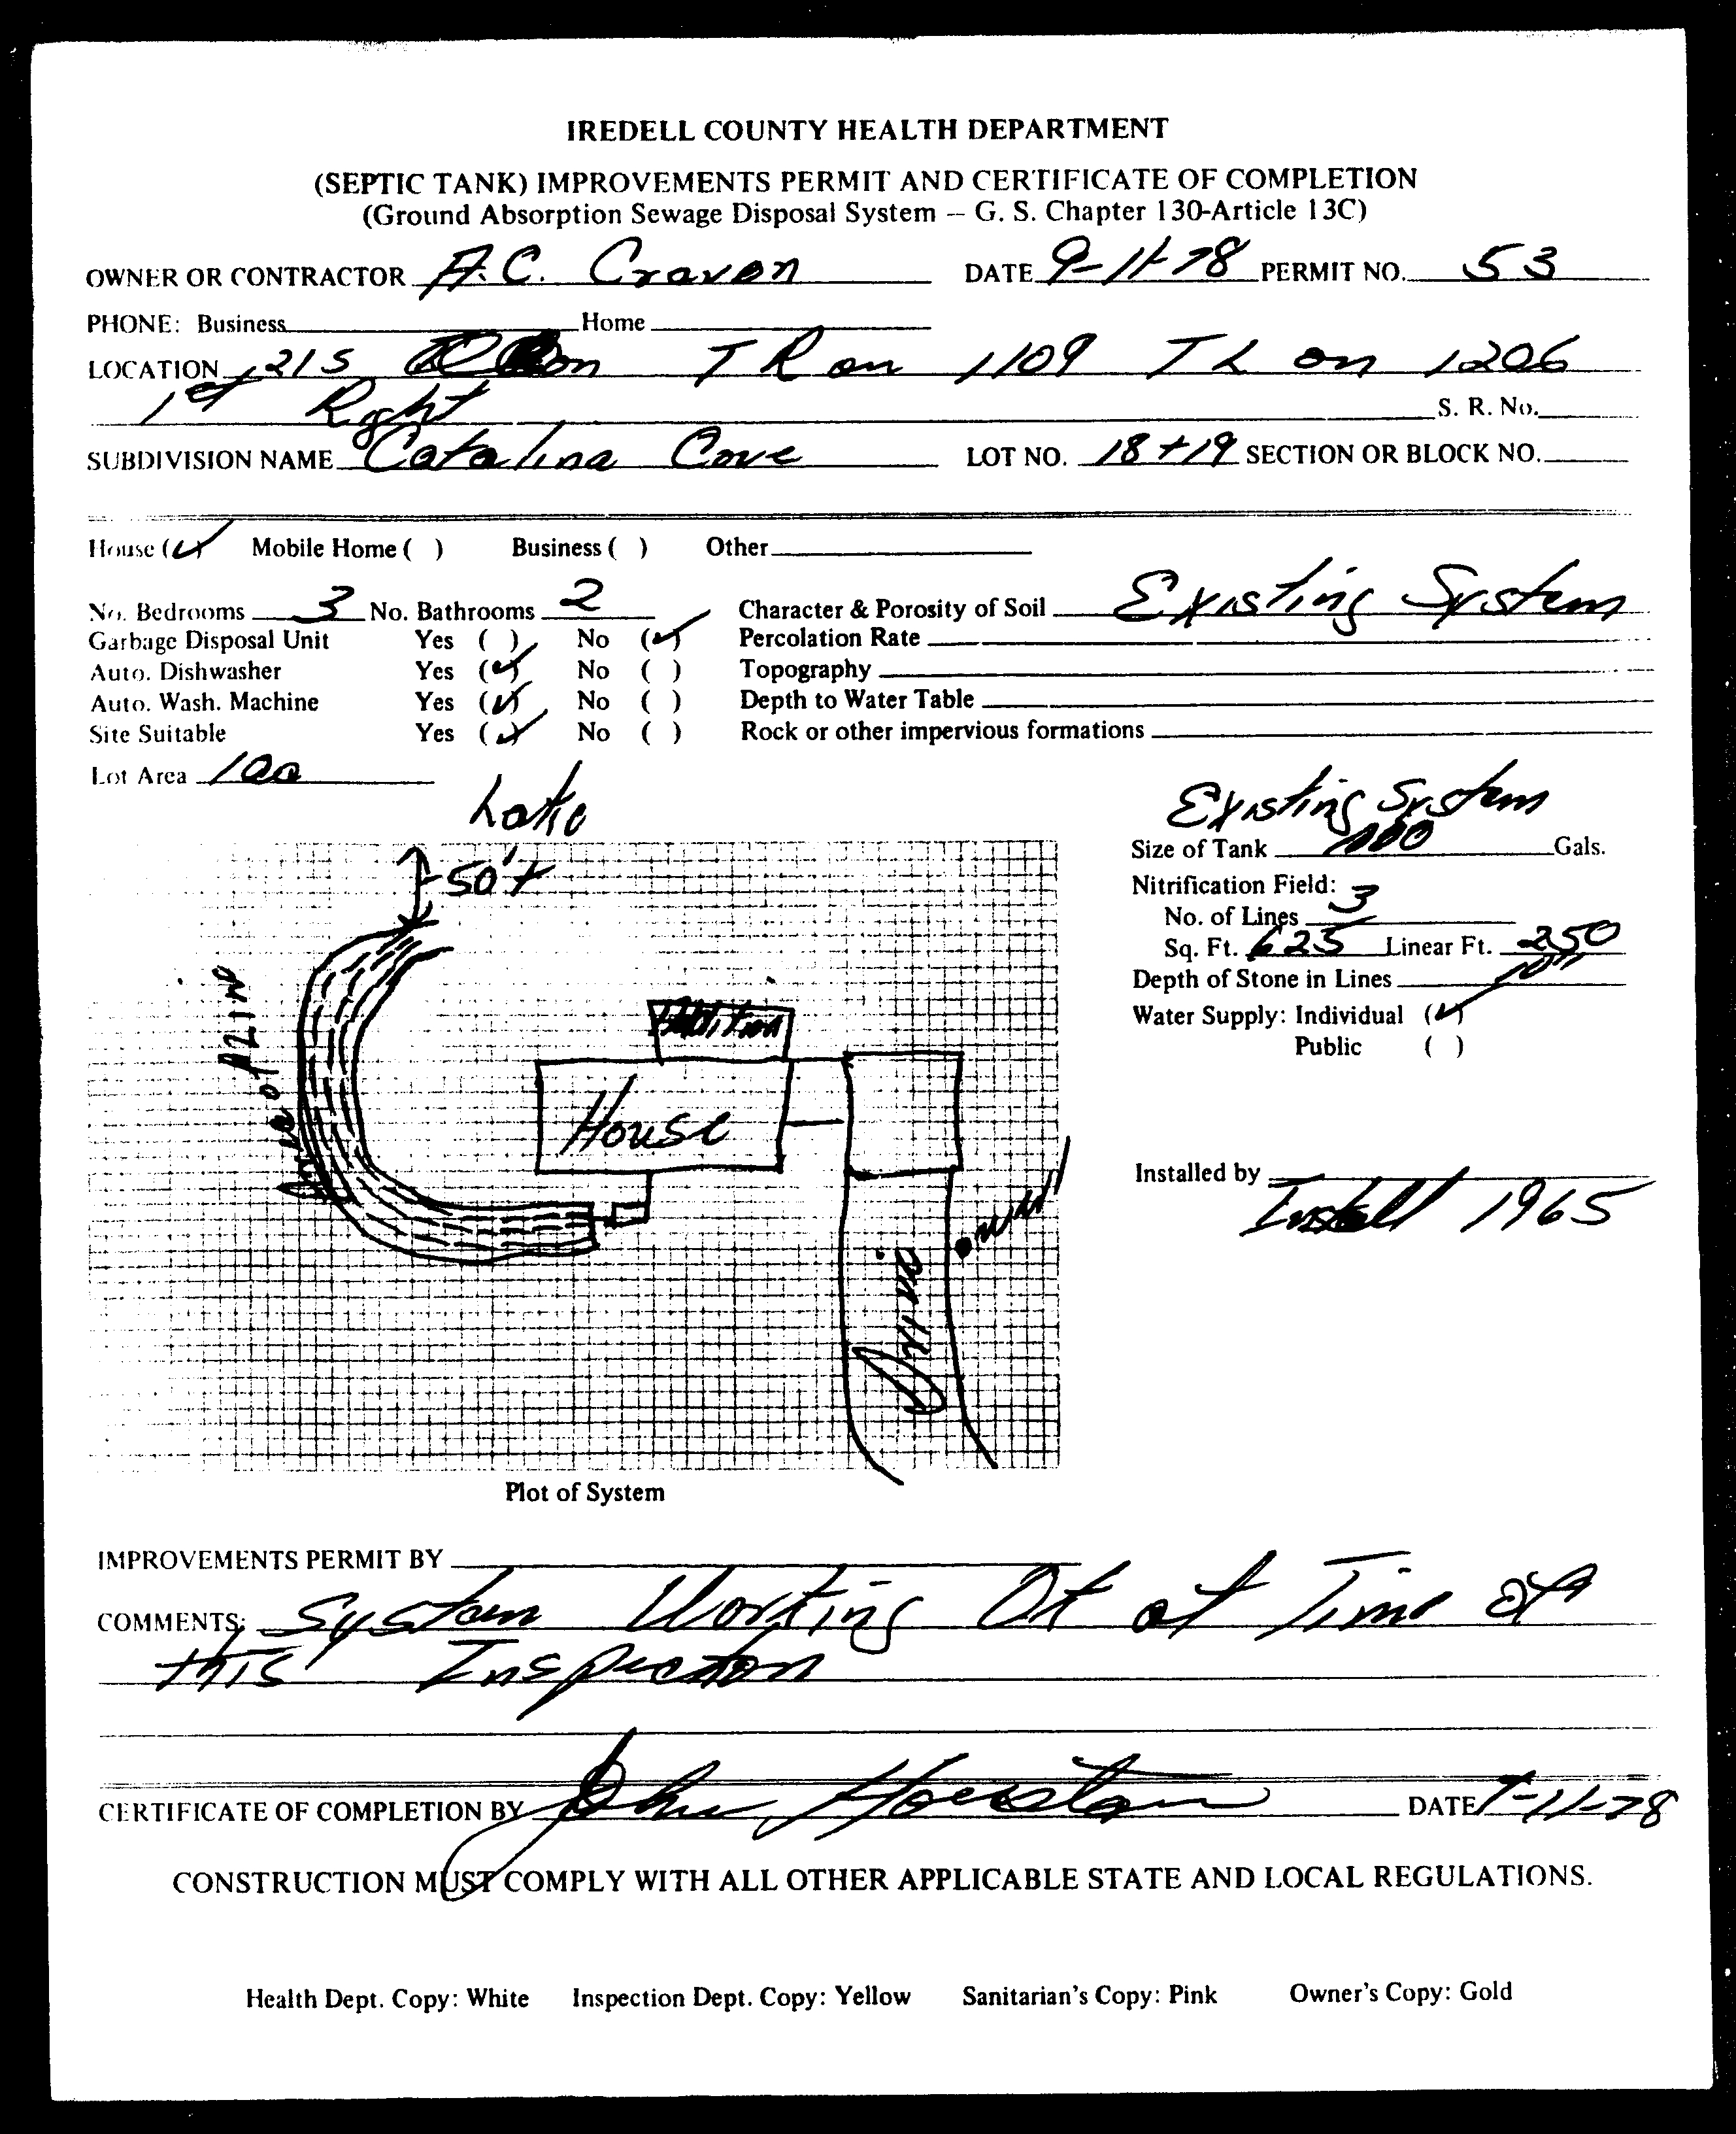 IREDELL COUNTY HEALTH DEPARTMENT
(SEPTIC TANK) IMPROVEMENTS PERMIT AND CERTIFICATE OF COMPLETION
(Ground Absorption Sewage Disposal System – G. S. Chapter 130-Article 13C)
OWNER OR CONTRACTOR A.C. Craven DATE 9-11-78 PERMIT NO. 53
PHONE: Business Home
LOCATION 21 S on TR on 1109 TL on 1206
1st Right S. R. No.
SUBDIVISION NAME Catalina Cove LOT NO. 18+19 SECTION OR BLOCK NO.
House (✓) Mobile Home ( ) Business ( ) Other
No. Bedrooms 3 No. Bathrooms 2 Character & Porosity of Soil Existing System
Garbage Disposal Unit Yes ( ) No (✓) Percolation Rate
Auto. Dishwasher Yes (✓) No ( ) Topography
Auto. Wash. Machine Yes (✓) No ( ) Depth to Water Table
Site Suitable Yes (✓) No ( ) Rock or other impervious formations
Lot Area
Lake
Existing System
Size of Tank 1000 Gals.
50'+
Nitrification Field:
No. of Lines 3
Sq. Ft. 625 Linear Ft. 250
Depth of Stone in Lines 10"
Water Supply: Individual (✓)
Public ( )
Addition
House
Well
Drive
Installed by
Install 1965
Plot of System
IMPROVEMENTS PERMIT BY
COMMENTS: System Working Ok at Time of
this Inspection
CERTIFICATE OF COMPLETION BY John Houston DATE 9-11-78
CONSTRUCTION MUST COMPLY WITH ALL OTHER APPLICABLE STATE AND LOCAL REGULATIONS.
Health Dept. Copy: White Inspection Dept. Copy: Yellow Sanitarian's Copy: Pink Owner's Copy: Gold